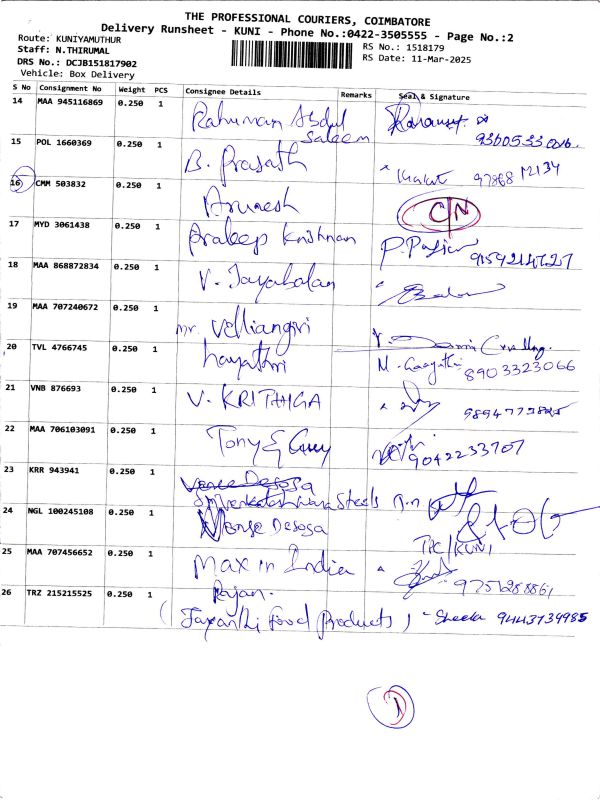 THE PROFESSIONAL COURIERS, COIMBATORE
Delivery Runsheet - KUNI - Phone No.:0422-3505555 - Page No.:2
Route: KUNIYAMUTHUR
RS No.: 1518179
Staff: N.THIRUMAL
RS Date: 11-Mar-2025
DRS No.: DCJB151817902
Vehicle: Box Delivery
S No Consignment No Weight PCS Consignee Details Remarks Seal & Signature
14 MAA 945116869 0.250 1 Rahuman Abdul Saleem
15 POL 1660369 0.250 1 B. Prasath
16 CMM 503832 0.250 1 Arumesh CN
17 MYD 3061438 0.250 1 Pradeep Krishnan
18 MAA 868872834 0.250 1 V. Jayabalan
19 MAA 707240672 0.250 1 mr. Velliangiri
20 TVL 4766745 0.250 1 hayathri 8903323066
21 VNB 876693 0.250 1 V. KRITHIGA
22 MAA 706103091 0.250 1 Tony & Guy 9042233707
23 KRR 943941 0.250 1 Sri Venkateshwara Steels
24 NGL 100245108 0.250 1 Desosa
TPC/KUNI
25 MAA 707456652 0.250 1 Max in India
26 TRZ 215215525 0.250 1 Rajan.
(Jayanthi Food Products) - Sheela 9443134985
1